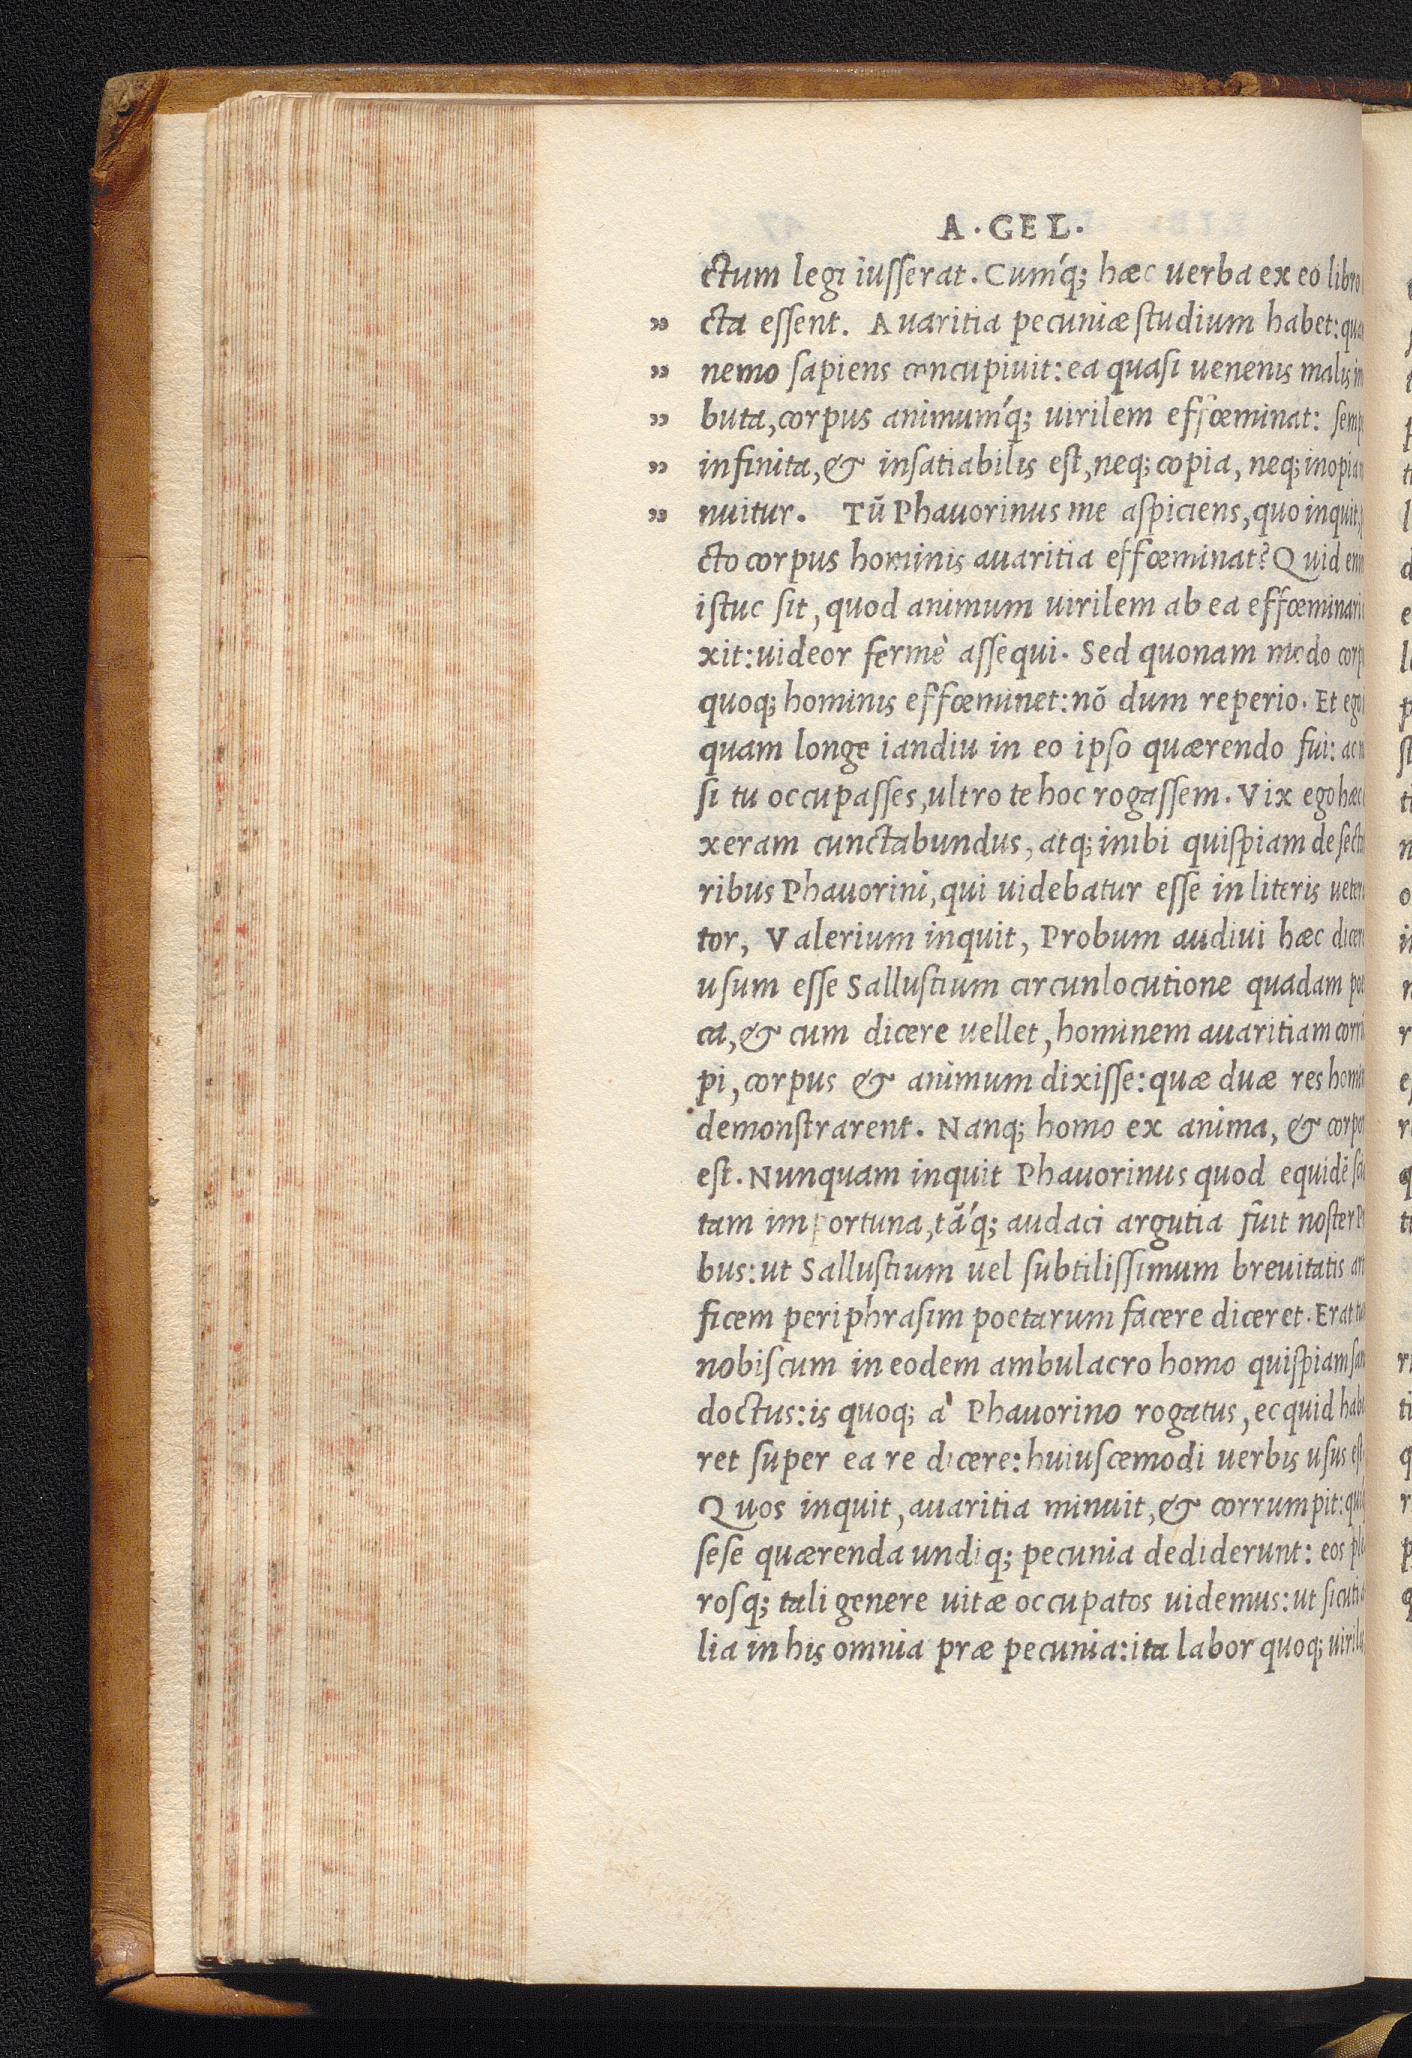 A. GEL.
ctum legi iusserat. Cumq́; hæc uerba ex eo libro
„ cta essent. Auaritia pecuniæ studium habet: qua
„ nemo sapiens concupiuit: ea quasi uenenis malis im
„ buta, corpus animumq́; uirilem effœminat: semp
„ infinita, & insatiabilis est, neq; copia, neq; inopia
„ nuitur. Tū Phauorinus me aspiciens, quo inquit
cto corpus hominis auaritia effœminat? Quid eni
istuc sit, quod animum uirilem ab ea effœminari
xit: uideor fermè assequi. Sed quonam modo corp
quoq; hominis effœminet: nō dum reperio. Et ego
quam longe iandiu in eo ipso quærendo fui: ac n
si tu occupasses, ultro te hoc rogassem. Vix ego hæc
xeram cunctabundus, atq; inibi quispiam de secta
ribus Phauorini, qui uidebatur esse in literis ueter
tor, Valerium inquit, Probum audiui hæc dicer
usum esse Sallustium circunlocutione quadam poe
ca, & cum dicere uellet, hominem auaritiam corru
pi, corpus & animum dixisse: quæ duæ res homin
demonstrarent. Nanq; homo ex anima, & corpor
est. Nunquam inquit Phauorinus quod equidē sci
tam importuna, tāq́; audaci argutia fuit noster P
bus: ut Sallustium uel subtilissimum breuitatis art
ficem periphrasim poetarum facere diceret. Erat tu
nobiscum in eodem ambulacro homo quispiam san
doctus: is quoq; à Phauorino rogatus, ecquid habe
ret super ea re dicere: huiuscemodi uerbis usus est
Quos inquit, auaritia minuit, & corrumpit: qui
sese quærenda undiq; pecunia dediderunt: eos ple
rosq; tali genere uitæ occupatos uidemus: ut sicuti a
lia in his omnia præ pecunia: ita labor quoq; uirilis